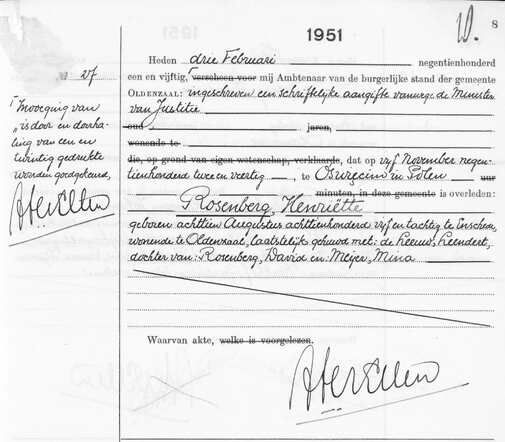 1951
1951
10.
8
Heden drie Februari negentienhonderd
27
een en vijftig, verscheen voor mij Ambtenaar van de burgerlijke stand der gemeente
OLDENZAAL: ingeschreven een schriftelijke aangifte vanwege de Minister
van Justitie
oud jaren,
wonende te
die, op grond van eigen wetenschap, verklaarde, dat op vijf November negen-
tienhonderd twee en veertig, te Oswiecim in Polen uur
minuten, in deze gemeente is overleden:
Rosenberg, Henriëtte
geboren achttien Augustus achttienhonderd vijf en tachtig te Enschede,
wonende te Oldenzaal, laatstelijk gehuwd met: de Leeuw, Leendert,
dochter van: Rosenberg, David en: Meijer, Mina
Waarvan akte, welke is voorgelezen.
Invoeging van
"is door en doorha-
ling van een en
twintig gedrukte
woorden goedgekeurd,